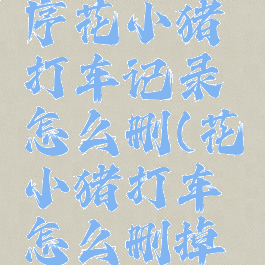 序花小猪
打车记录
怎么删(花
小猪打车
怎么删掉